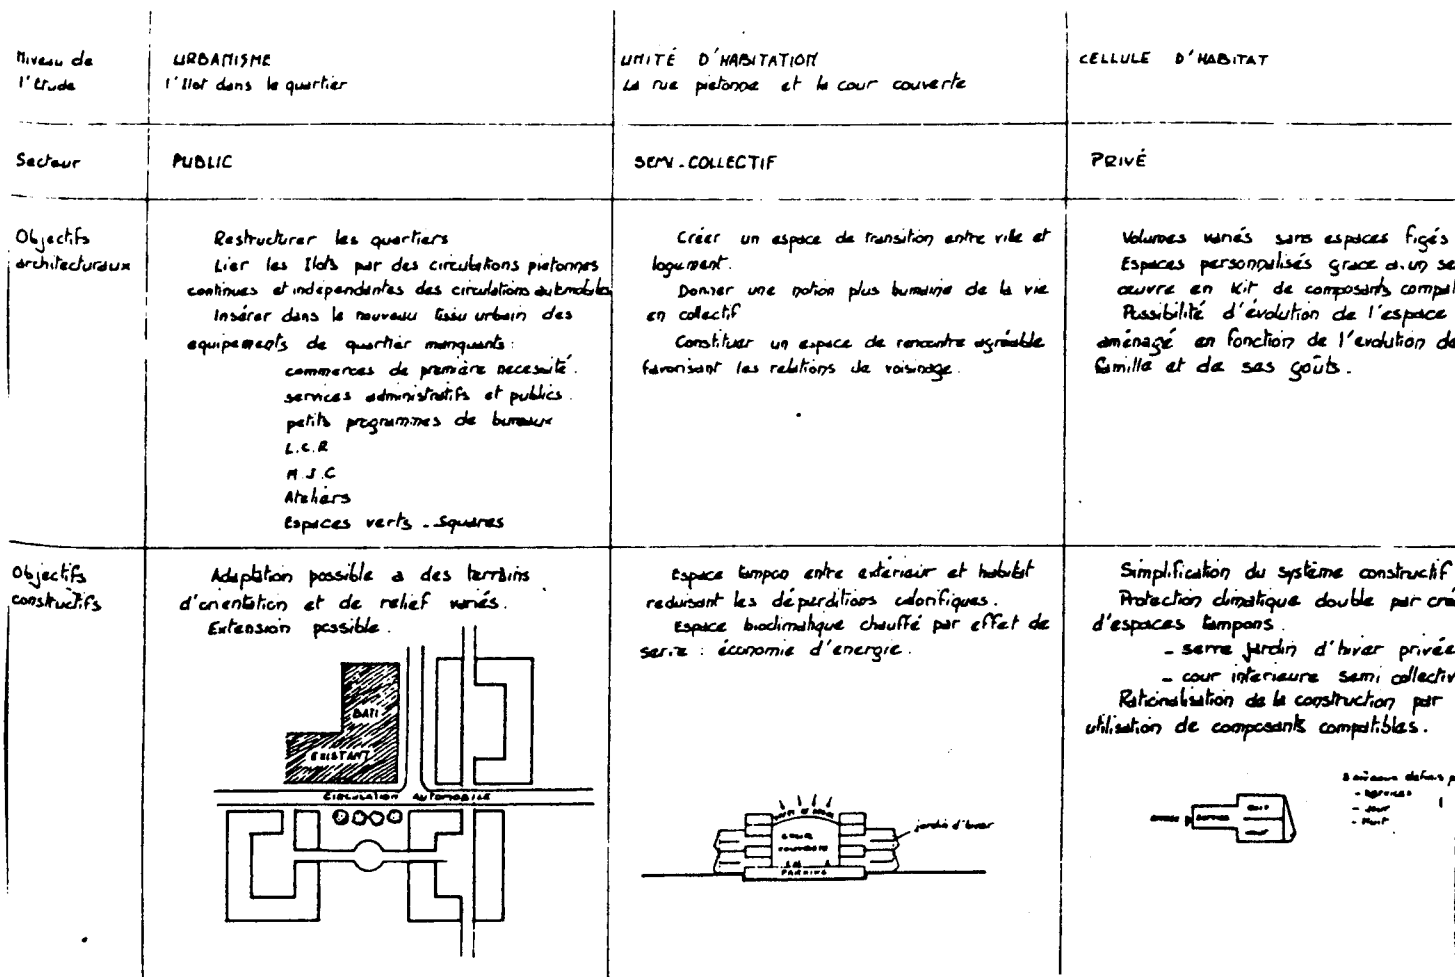 Niveau de
l'étude
URBANISME
l'Ilot dans le quartier
UNITÉ D'HABITATION
La rue pietonne et la cour couverte
CELLULE D'HABITAT
Secteur
PUBLIC
SEMI-COLLECTIF
PRIVÉ
Objectifs
architecturaux
Restructurer les quartiers
Lier les Ilots par des circulations pietonnes
continues et indépendantes des circulations automobiles
Insérer dans le nouveau tissu urbain des
equipements de quartier manquants :
commerces de première necessité.
services administratifs et publics.
petits programmes de bureaux
L.C.R
M.J.C
Ateliers
Espaces verts - Squares
Créer un espace de transition entre ville et
logement.
Donner une notion plus humaine de la vie
en collectif
Constituer un espace de rencontre agréable
favorisant les relations de voisinage.
Volumes variés sans espaces figés
Espaces personnalisés grace a un se
œuvre en Kit de composants compat
Possibilité d'évolution de l'espace
aménagé en fonction de l'evolution de
famille et de ses goûts.
Objectifs
constructifs
Adaptation possible a des terrains
d'orientation et de relief variés.
Extension possible.
BATI
EXISTANT
CIRCULATION AUTOMOBILE
Espace tampon entre extérieur et habitat
reduisant les déperditions calorifiques.
Espace bioclimatique chauffé par effet de
serre : économie d'energie.
COUR
COUVERTE
PARKING
jardin d'hiver
Simplification du système constructif
Protection climatique double par cré
d'espaces tampons.
- serre jardin d'hiver privée
- cour interieure semi collectiv
Rationalisation de la construction par
utilisation de composants compatibles.
- services
- jour
- nuit